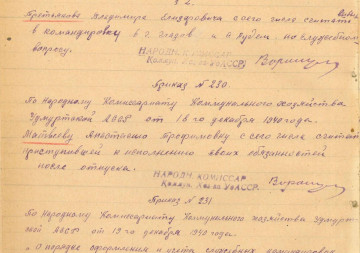 Третьякова Владимира Елизаровича с сего числа считать
в командировке в г. Глазов и п. Кудем. по служебному
вопросу.
НАРОДН. КОМИССАР
Коммун. Хоз-ва УдАССР
Приказ № 230.
По Народному Комиссариату Коммунального хозяйства
Удмуртской АССР от 16го декабря 1940 года.
Матвееву Анастасию Трофимовну с сего числа считать
приступившей к исполнению своих обязанностей
после отпуска.
НАРОДН. КОМИССАР
Коммун. Хоз-ва УдАССР
Приказ № 231
По Народному Комиссариату Коммунального хозяйства Удмурт-
ской АССР от 19го декабря 1940 года.
"О порядке оформления и учета служебных командировок